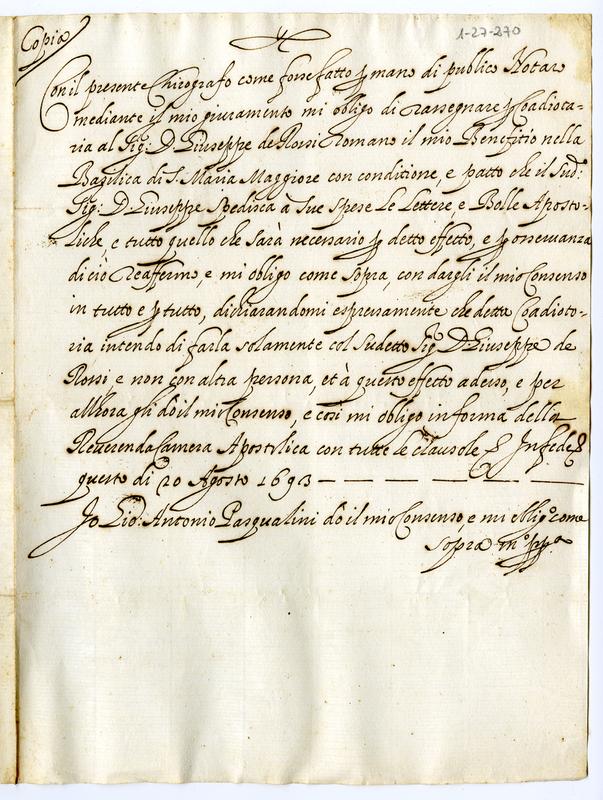 1-27-270
Copia
Con il presente Chirografo come fosse fatto p mano di publico Notaro
mediante il mio giuramento mi obligo di rassegnare p Coadiuto-
ria al Sig: D. Giuseppe de Rossi Romano il mio Benefitio nella
Basilica di S. Maria Maggiore con conditione, e patto che il Sud:
Sig: D. Giuseppe spedisca à sue spese le lettere, e Bolle Aposto-
liche, e tutto quello che sarà necessario p detto effetto, e p osservanza
di ciò reaffermo, e mi obligo come sopra, con dargli il mio Consenso
in tutto e p tutto, dichiarandomi espressamente che detta Coadioto-
ria intendo di farla solamente col sudetto Sig. D. Giuseppe de
Rossi, e non con altra persona, et à questo effetto adesso, e per
all'hora gli dò il mio Consenso, e così mi obligo in forma della
Reverenda Camera Apostolica con tutte le clausole &. In fede &
questo dì 20 Agosto 1693
Io Gio: Antonio Pasqualini dò il mio Consenso e mi obligo come
sopra m.o pp.a